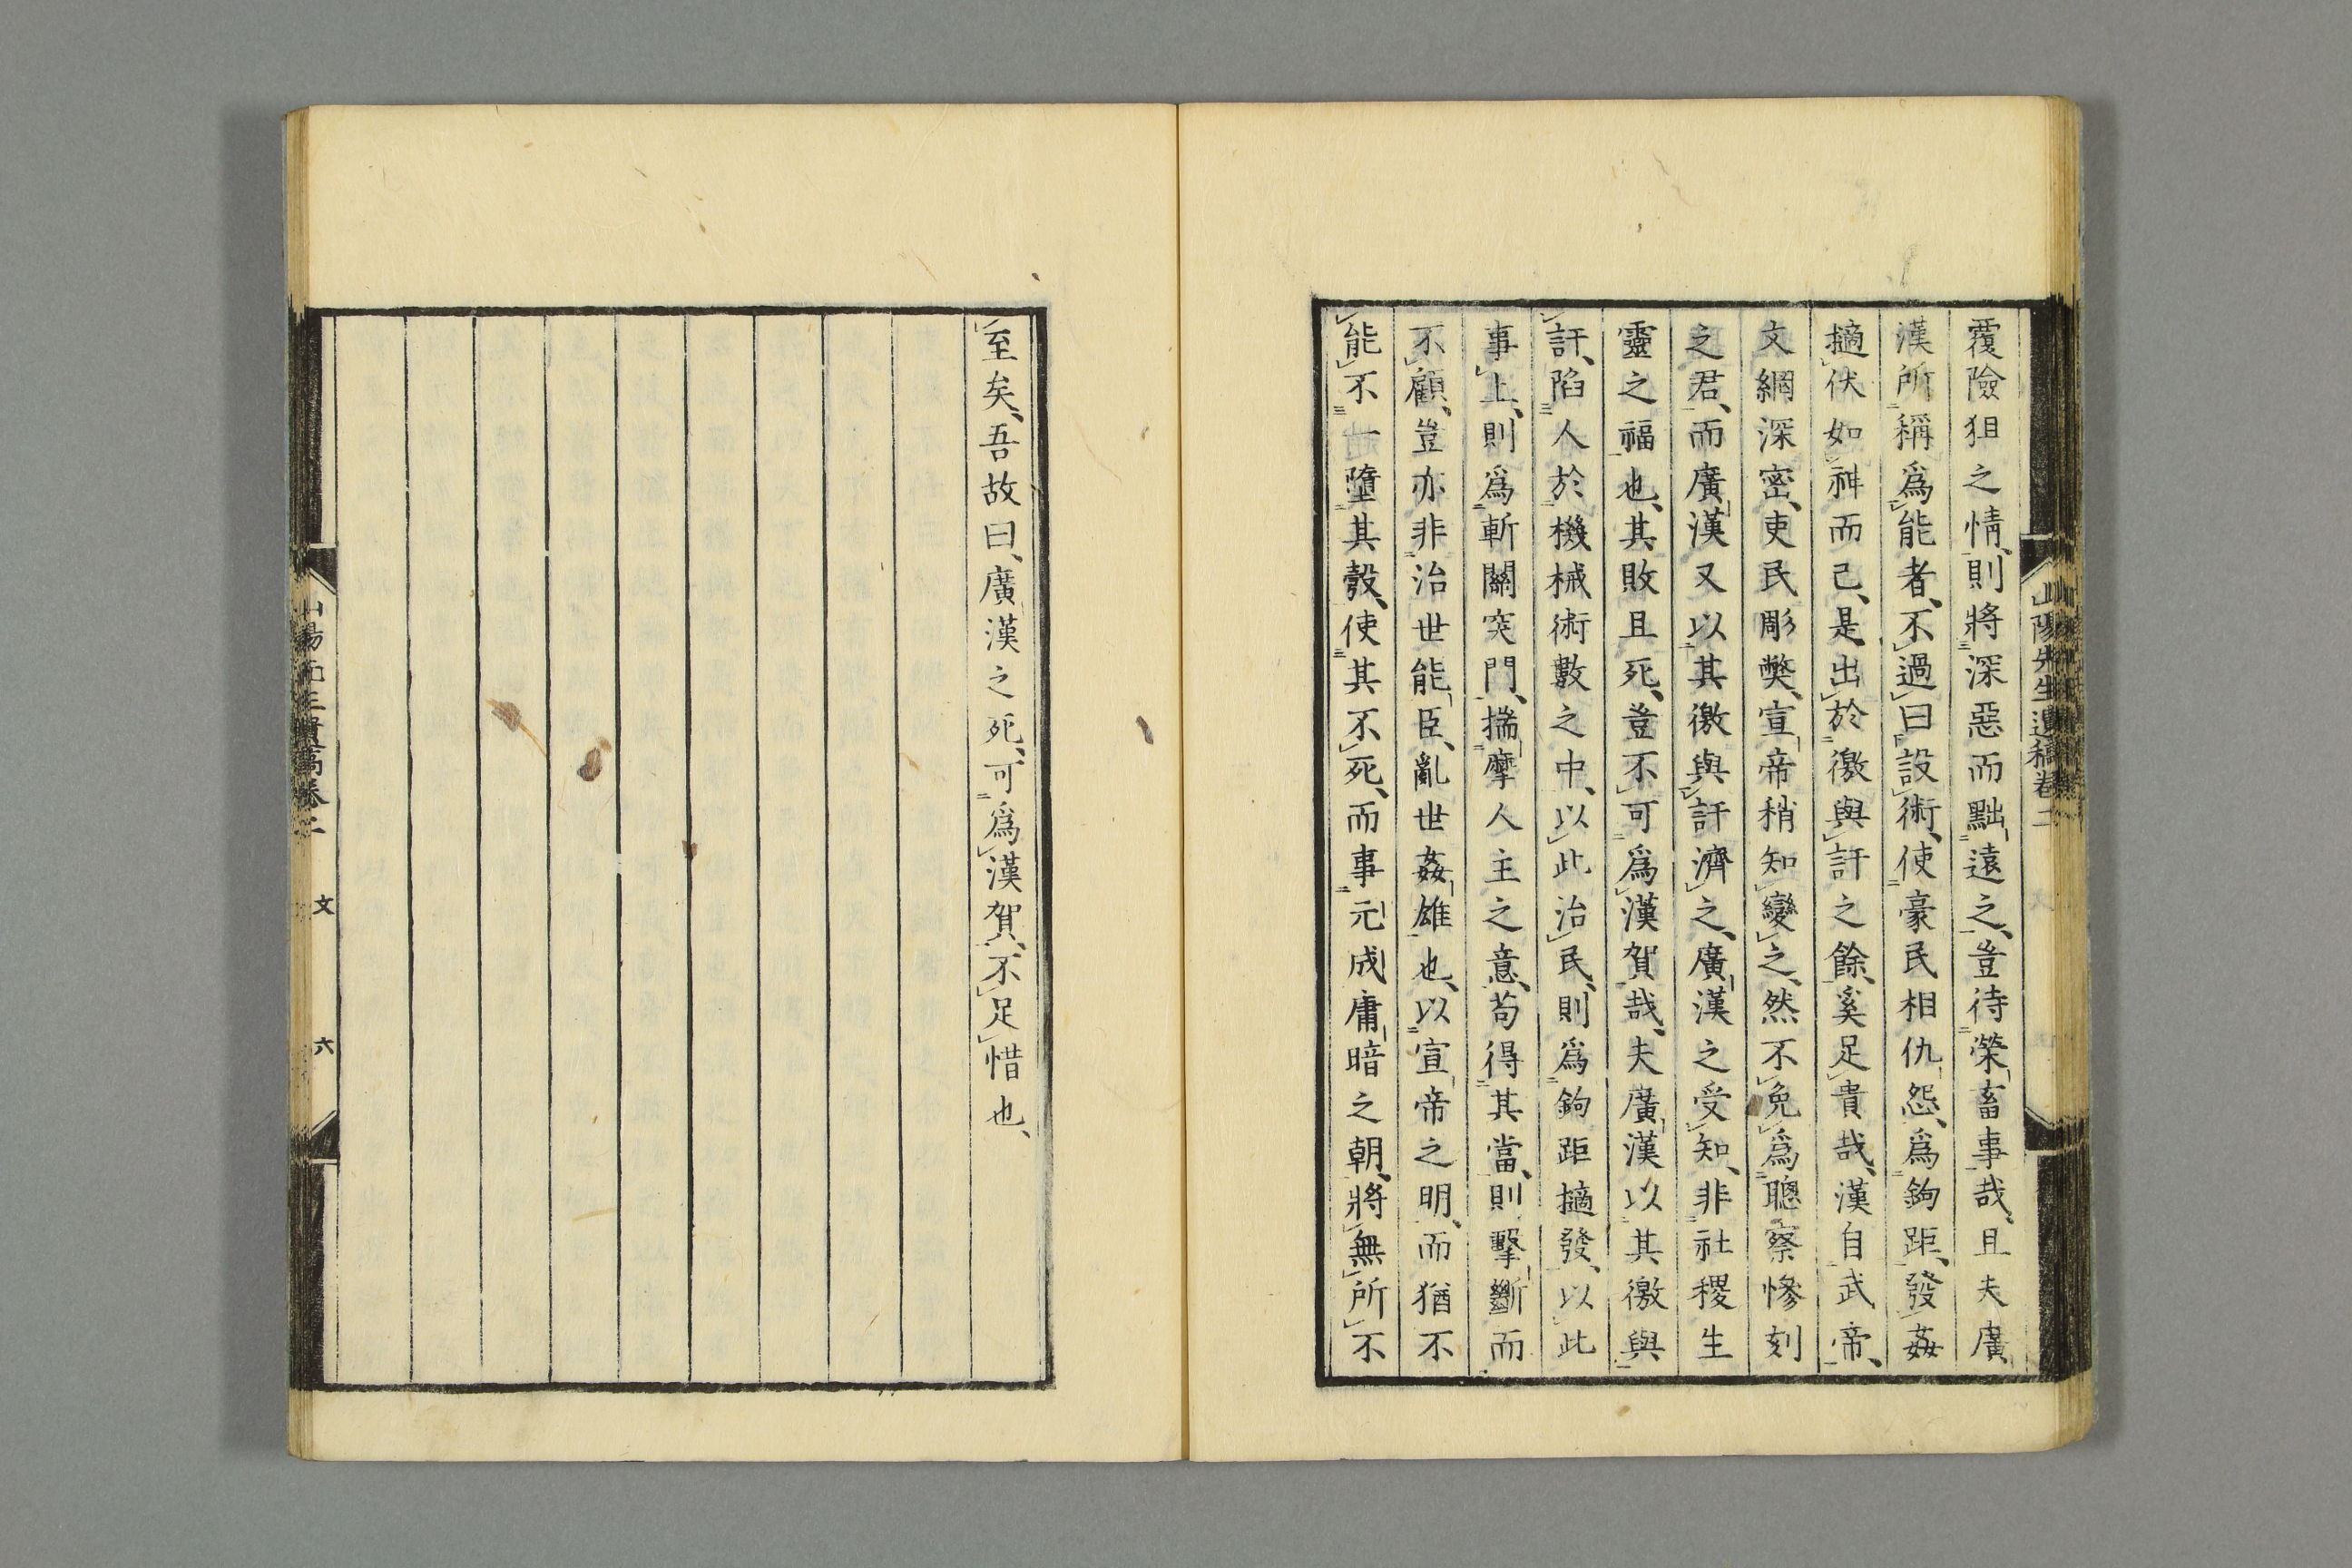 覆險狙之情、則將深惡而黜遠之、豈待榮畜事哉、且夫廣
漢所稱爲能者、不過曰設術、使豪民相仇怨、爲鉤距、發姦
擿伏如神而已、是出於徼與訐之餘、奚足貴哉、漢自武帝、
文網深密、吏民彫弊、宣帝稍知變之、然不免爲聰察慘刻
之君、而廣漢又以其徼與訐濟之、廣漢之受知、非社稷生
靈之福也、其敗且死、豈不可爲漢賀哉、夫廣漢以其徼與
訐、陷人於機械術數之中、以此治民、則爲鉤距擿發、以此
事上、則爲斬關突門、揣摩人主之意、苟得其當、則擊斷而
不顧、豈亦非治世能臣、亂世姦雄也、以宣帝之明、而猶不
能不一墮其彀、使其不死、而事元成庸暗之朝、將無所不
至矣、吾故曰、廣漢之死、可爲漢賀、不足惜也、
山陽先生遺稿卷二
山陽先生遺稿卷二 文 六